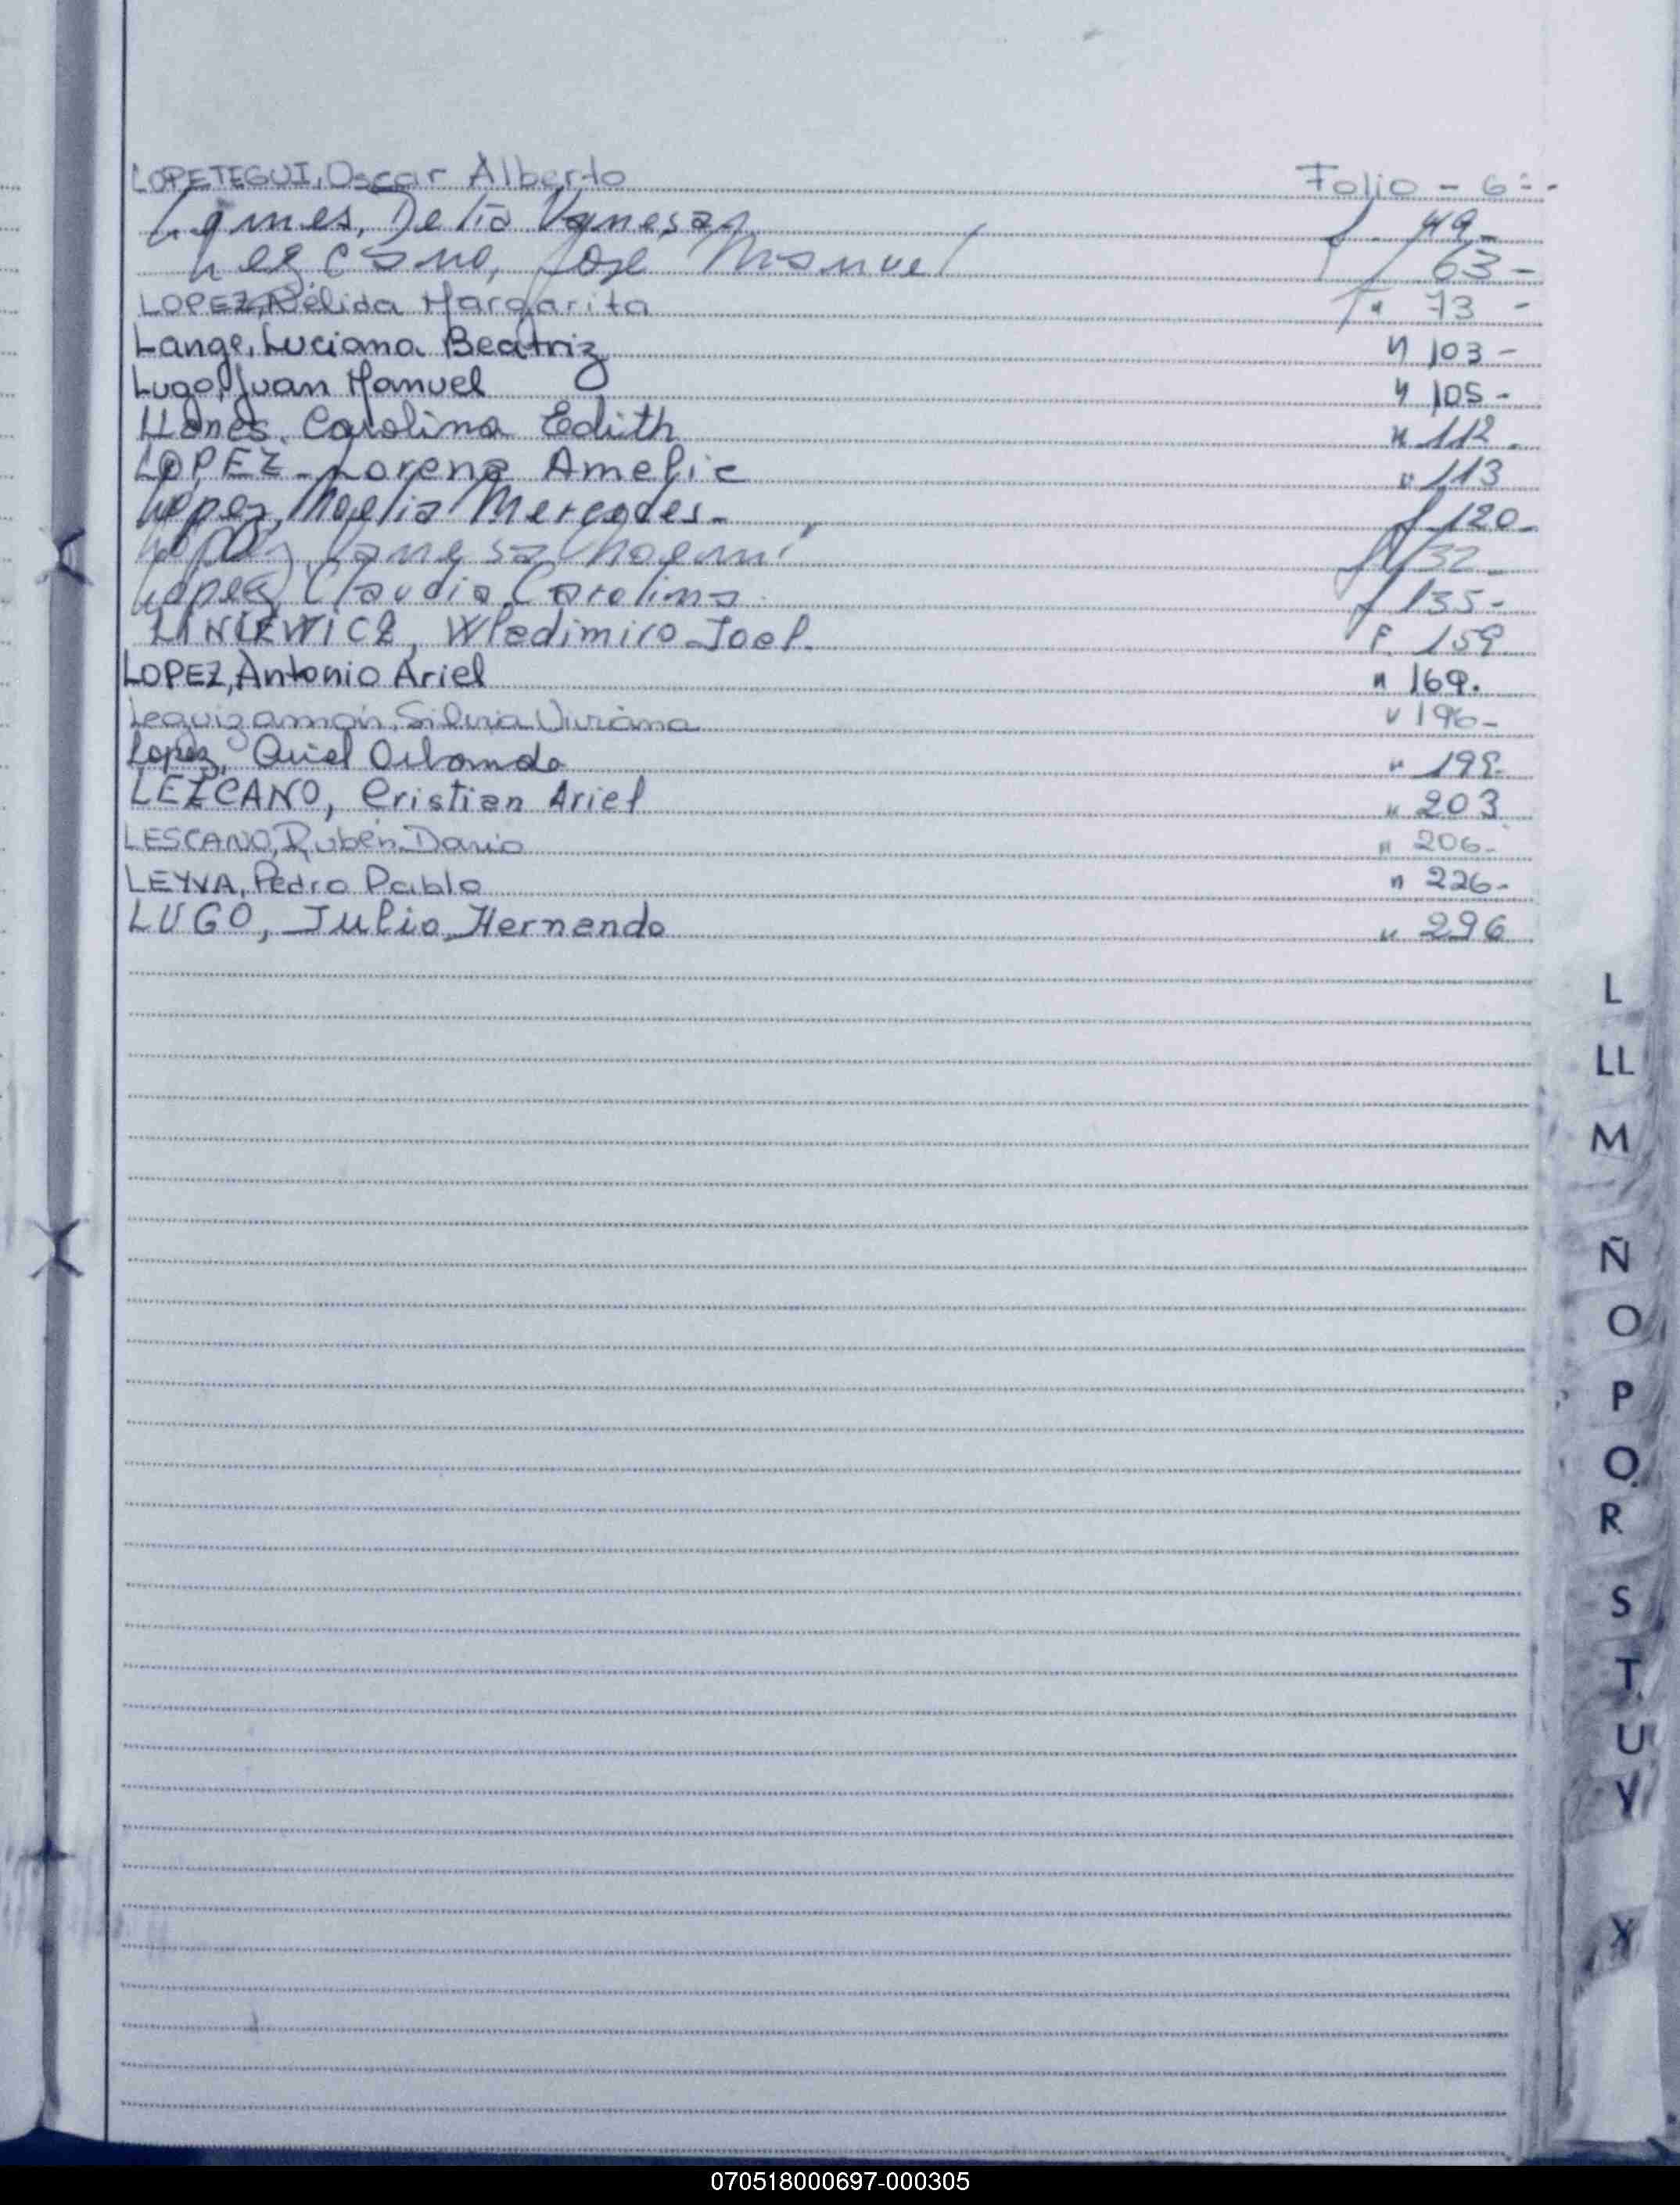 LOPETEGUI, Oscar Alberto Folio - 6 - -
Lames, Delia Vanesa f 49 -
Lezcano, Jose Manuel f 63 -
LOPEZ, Nélida Margarita " 73 -
Lange, Luciana Beatriz " 103 -
Lugo, Juan Manuel " 105 -
Llanes, Carolina Edith " 112 -
LOPEZ - Lorena Amelia " 113
Lopez, Noelia Mercedes - f 120 -
Lopez, Vanesa Nohemí f 132 -
Lopez, Claudia Carolina f 135 -
LINIEWICZ, Wladimiro Joel. F. 159
LOPEZ, Antonio Ariel " 169.
Leguizamón, Silvia Viviana " 196 -
Lopez, Ariel Orlando " 199 -
LEZCANO, Cristian Ariel " 203
LESCANO, Rubén Dario " 206 -
LEYVA, Pedro Pablo " 226 -
LUGO, Julio Hernando " 296
L
LL
M
Ñ
O
P
Q
R
S
T
U
V
X
070518000697-000305